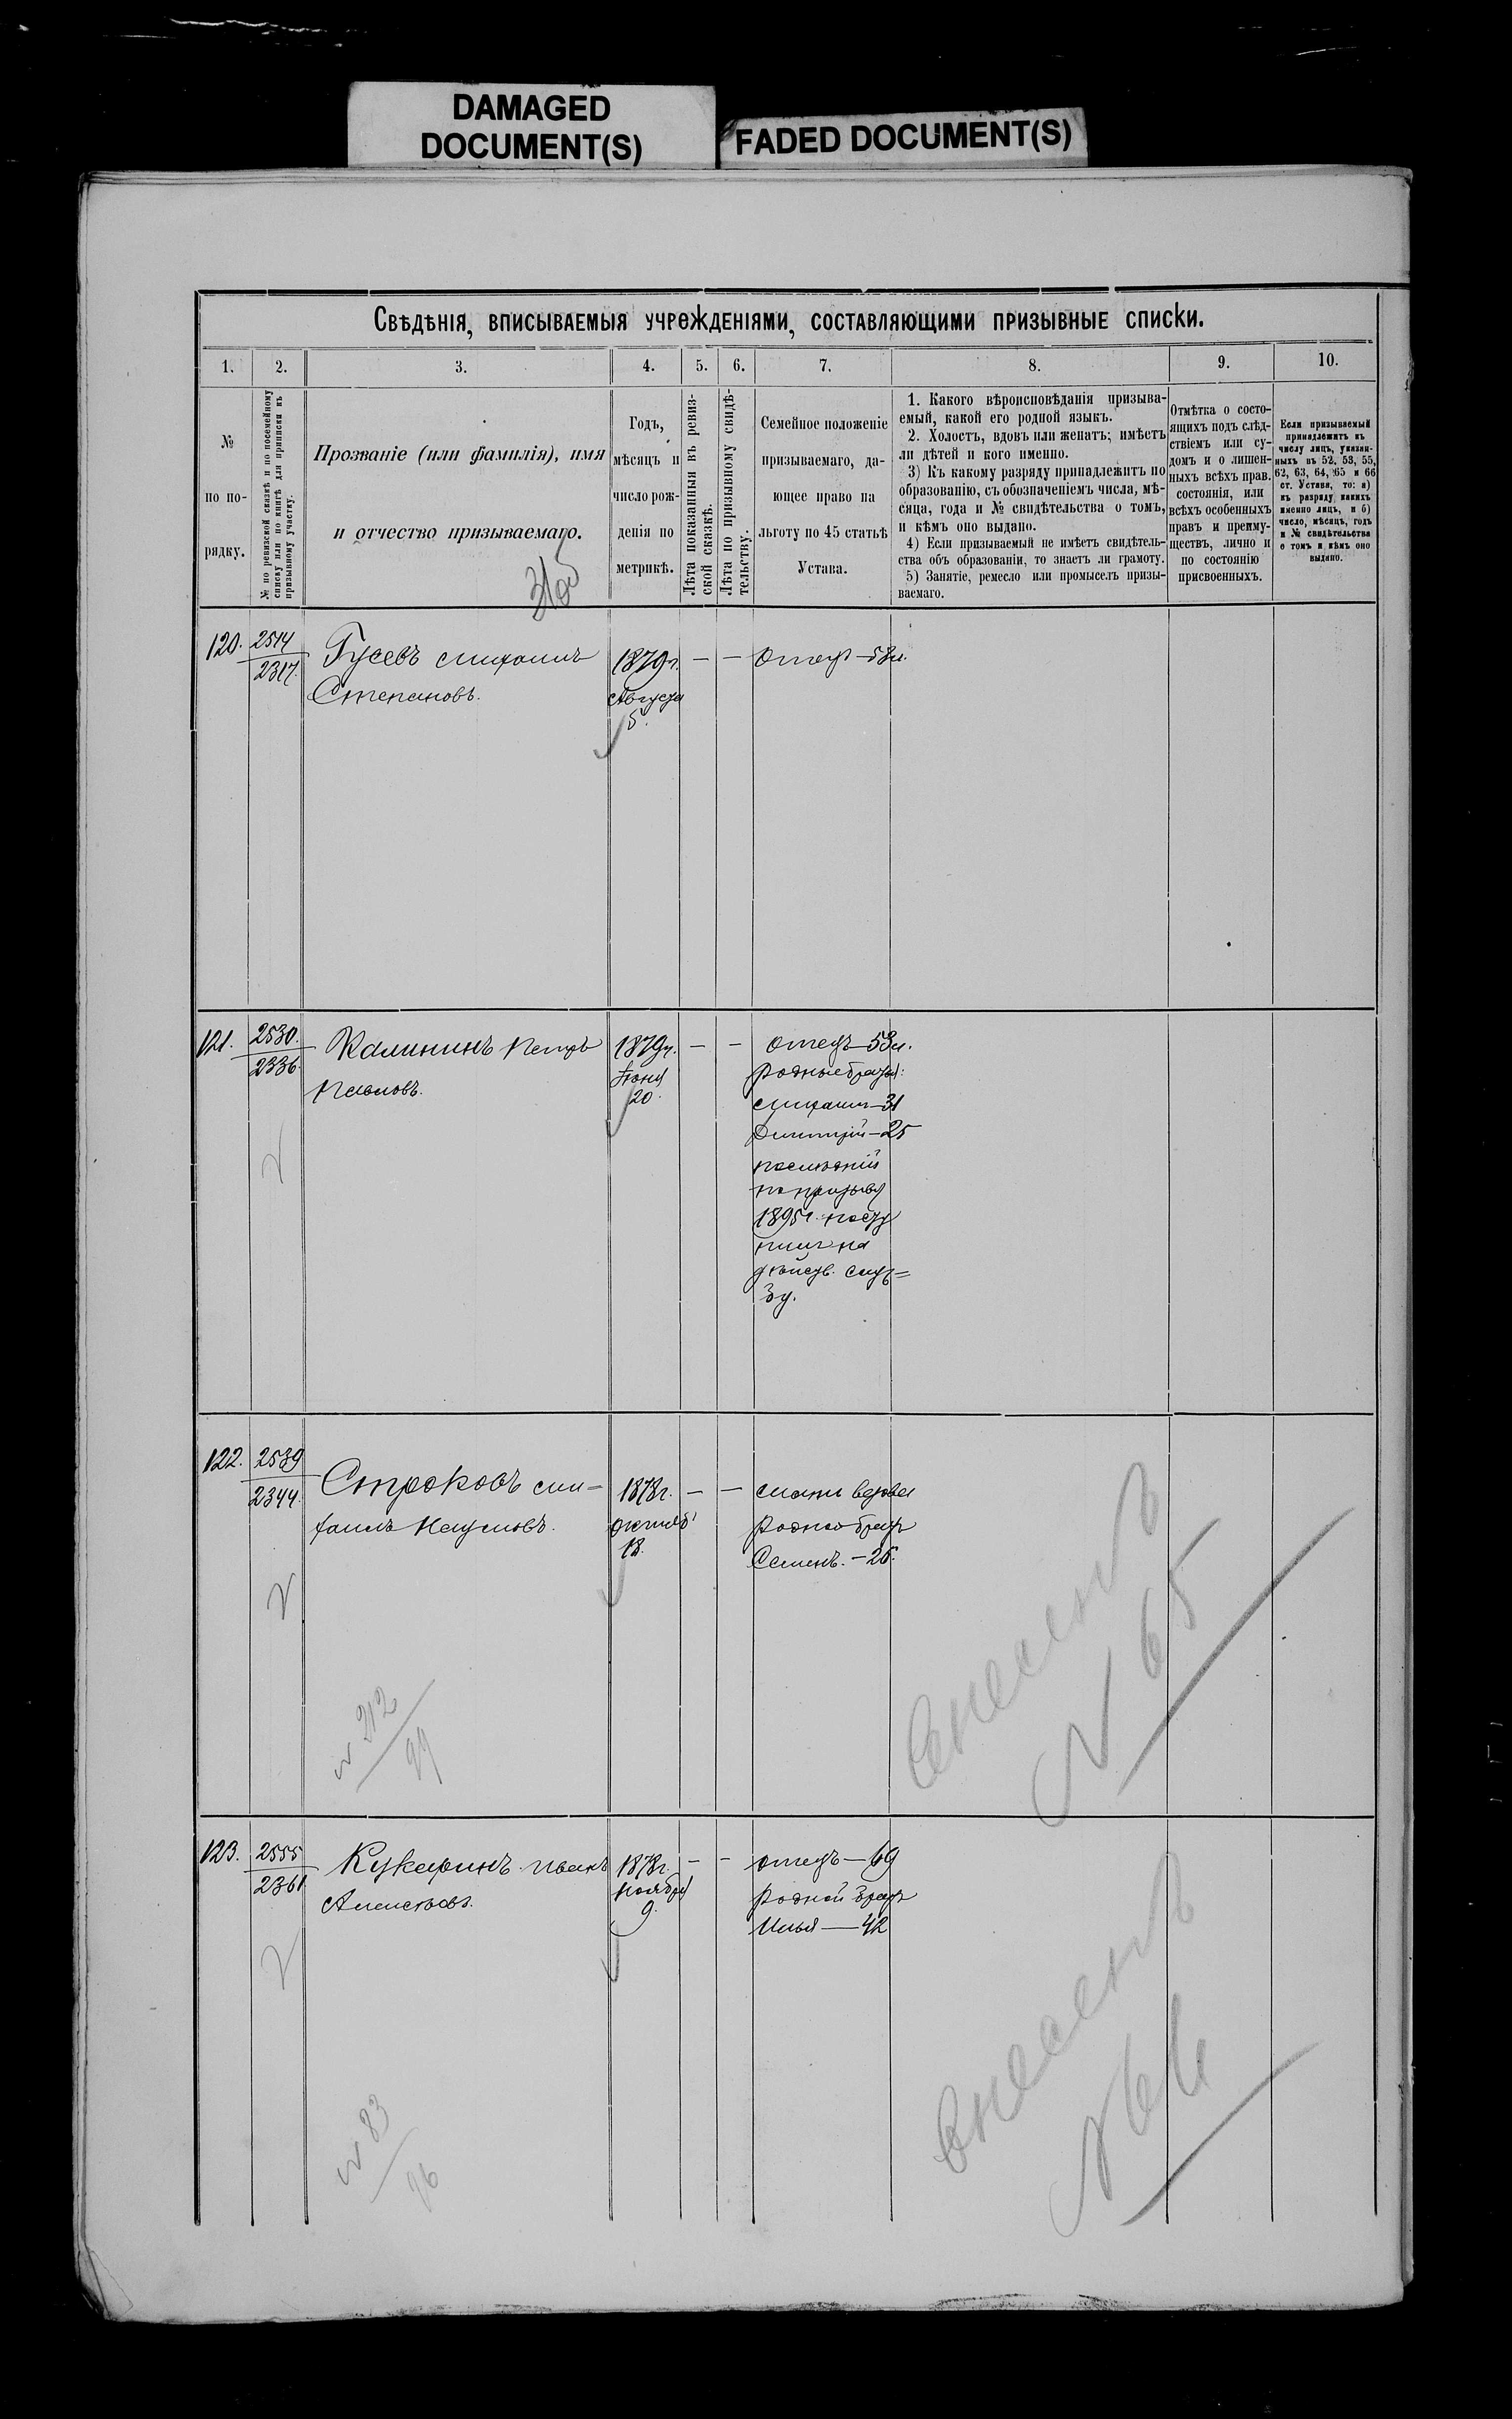 DAMAGED
DOCUMENT(S)
FADED DOCUMENT(S)
Свѣдѣнія, вписываемыя учрежденіями, составляющими призывные списки.
1.
2.
3.
4.
5.
6.
7.
8.
9.
10.
№
по по-
рядку.
№ по ревизской сказкѣ и по посемейному
списку или по книгѣ для приписки къ
призывному участку.
Прозваніе (или фамилія), имя
и отчество призываемаго.
Годъ,
мѣсяцъ и
число рож-
денія по
метрикѣ.
Лѣта показанныя въ ревиз-
ской сказкѣ.
Лѣта по призывному свидѣ-
тельству.
Семейное положеніе
призываемаго, да-
ющее право на
льготу по 45 статьѣ
Устава.
1. Какого вѣроисповѣданія призыва-
емый, какой его родной языкъ.
2. Холостъ, вдовъ или женатъ; имѣетъ
ли дѣтей и кого именно.
3) Къ какому разряду принадлежитъ по
образованію, съ обозначеніемъ числа, мѣ-
сяца, года и № свидѣтельства о томъ,
и кѣмъ оно выдано.
4) Если призываемый не имѣетъ свидѣтель-
ства объ образованіи, то знаетъ ли грамоту.
5) Занятіе, ремесло или промыселъ призы-
ваемаго.
Отмѣтка о состо-
ящихъ подъ слѣд-
ствіемъ или су-
домъ и о лишен-
ныхъ всѣхъ прав.
состоянія, или
всѣхъ особенныхъ
правъ и преиму-
ществъ, лично и
по состоянію
присвоенныхъ.
Если призываемый
принадлежитъ къ
числу лицъ, указан-
ныхъ въ 52, 53, 55,
62, 63, 64, 65 и 66
ст. Устава, то: а)
къ разряду какихъ
именно лицъ, и б)
число, мѣсяцъ, годъ
и № свидѣтельства
о томъ и кѣмъ оно
выдано.
120. 2514 Гусевъ Михаилъ 1879г. — — Отецъ — 53л.
2317. Степановъ. Августа
5.
121. 2530. Калининъ Петръ 1879г. — — Отецъ — 53л.
2336. Павловъ. Іюня Родные братья:
20. Михаилъ — 31
Дмитрій — 25
послѣдній
по призыву
1895г. посту
пилъ на
дѣйств. служ=
бу.
122. 2539 Строковъ Ми= 1878г. — — Мать вдова
2344. хаилъ Наумовъ. Октяб. Родной братъ
18. Семенъ. — 26.
Внесенъ
N 65
N 212
99
123. 2555 Кукаринъ Иванъ 1878г. — — Отецъ — 69
2361. Алексѣевъ. Ноября Родной братъ
9. Илья — 42
Внесенъ
N 66
N 83
96